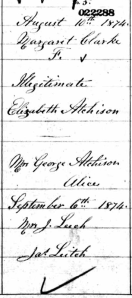 022288
August 10th 1874
Margaret Clarke
F.
Illegitimate
Elizabeth Atchison
Mrs George Atchison
Alice
September 6th 1874
Mrs J. Leech
Jas Leitch